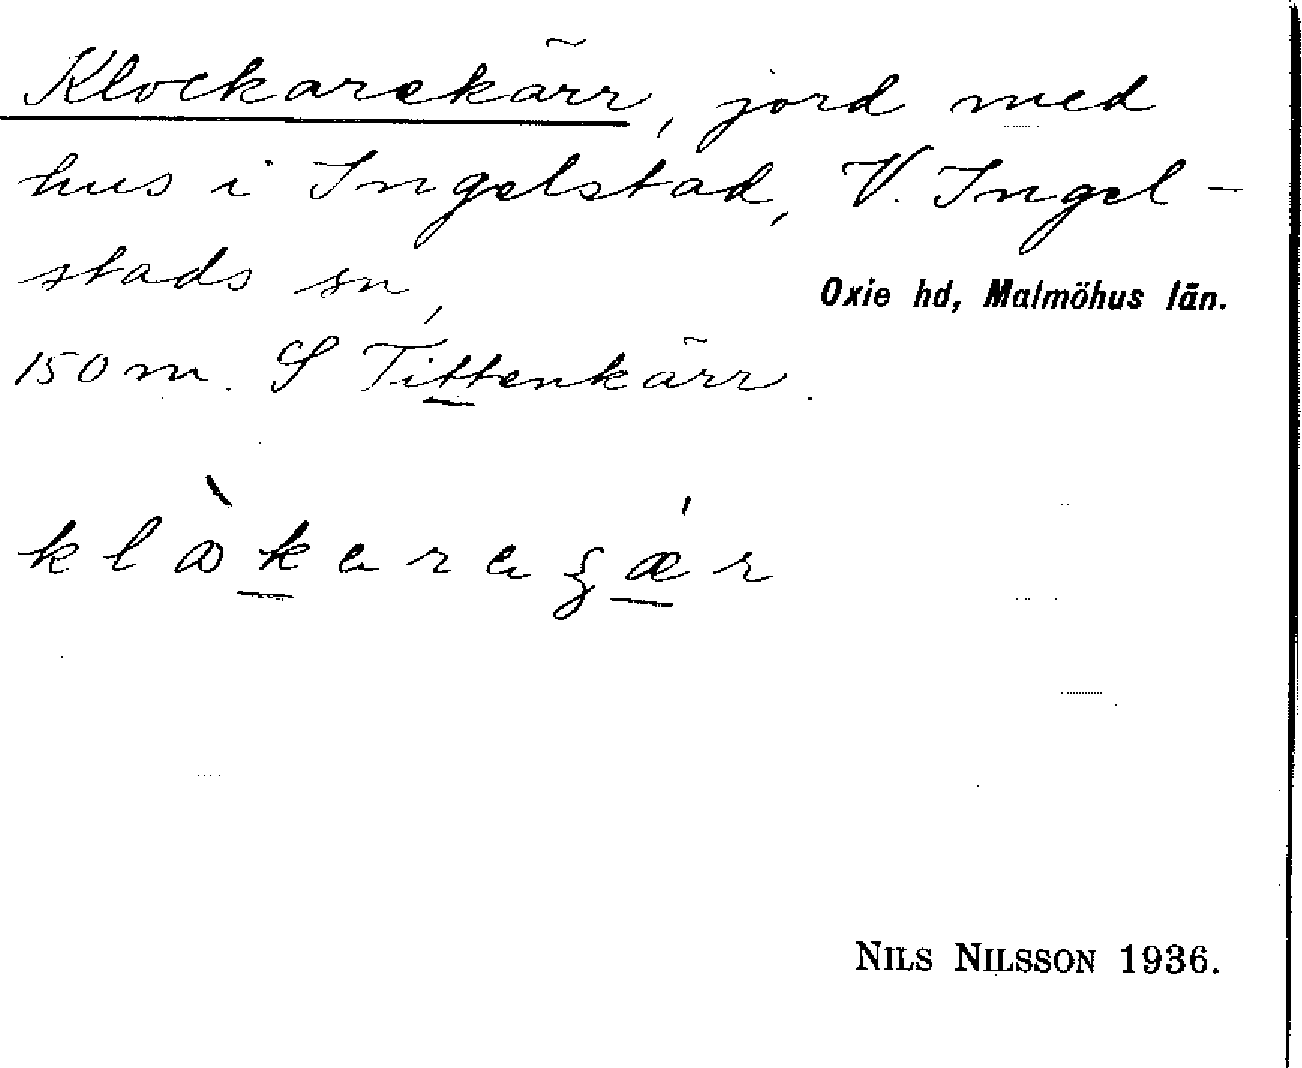 Klockarekärr, jord med
hus i Ingelstad, V. Ingel-
stads sn,
Oxie hd, Malmöhus län.
150 m. S Tittenkärr.
NILS NILSSON 1936.